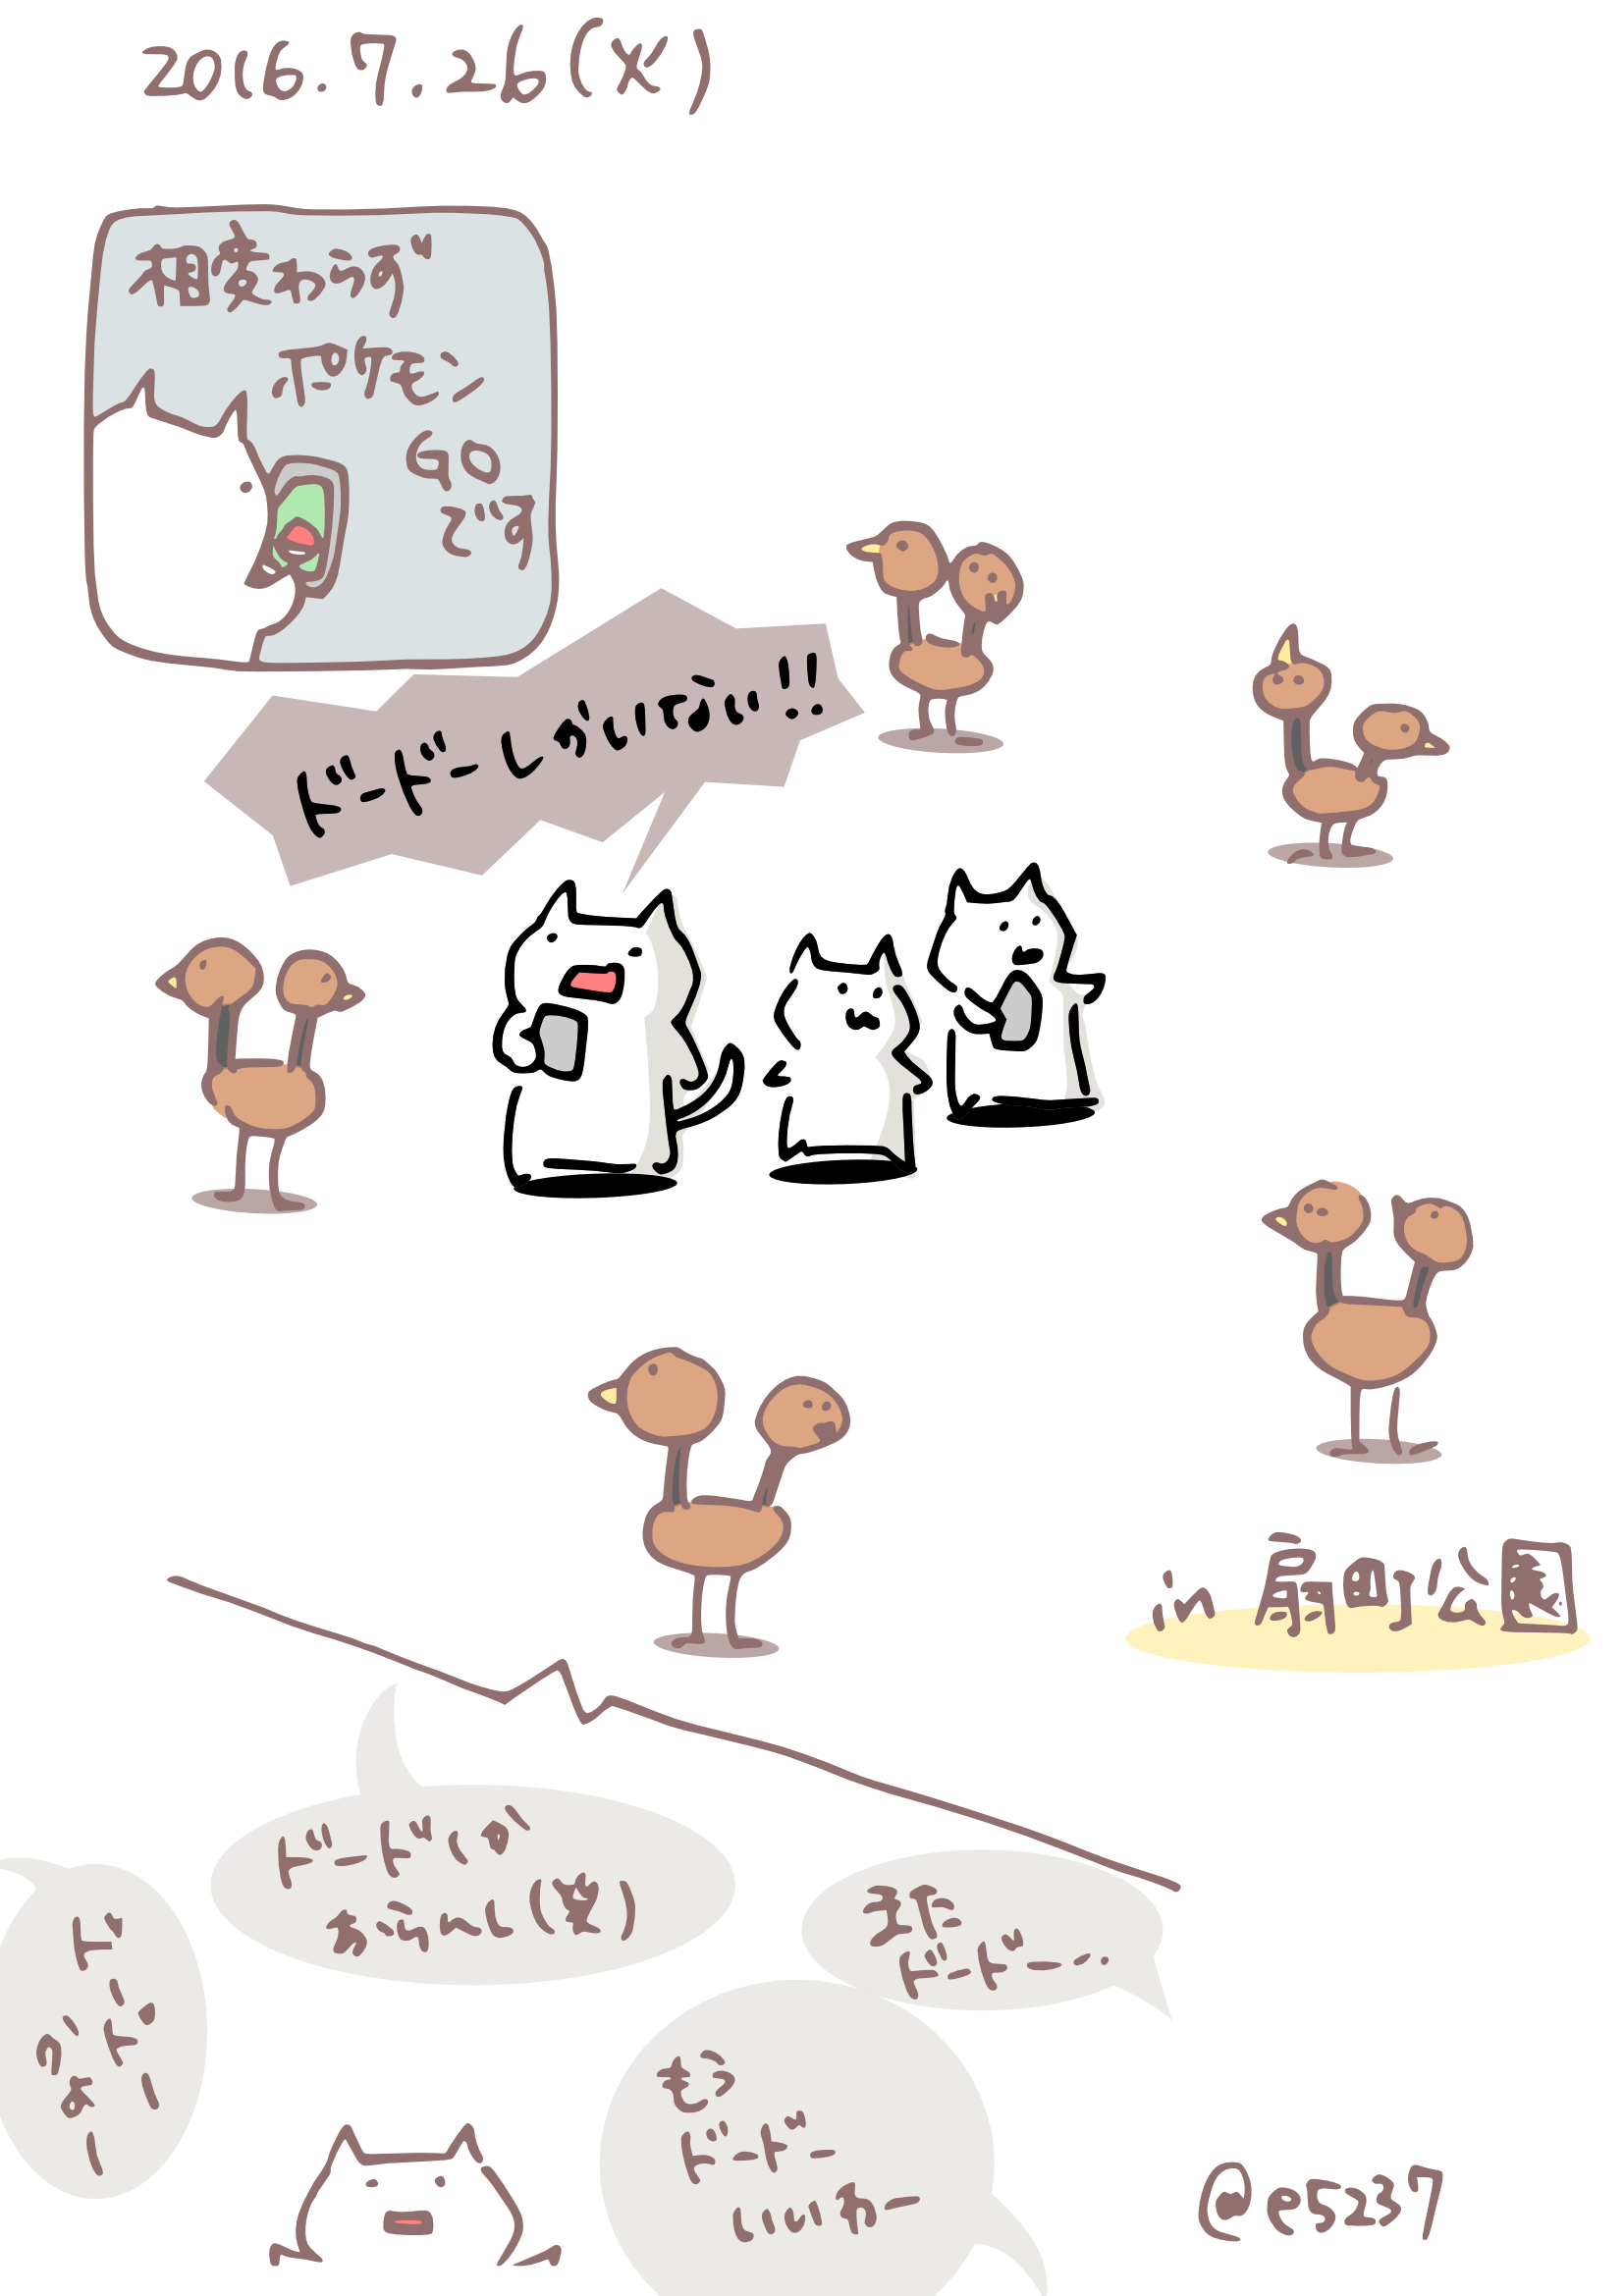 2016.7.26(火)
相変わらず
ポケモン
GO
です
ドードーしがいねぇい!!
in 扇町公園
ドードーが
えらいし(笑)
また
ドードー…
ドードー
がなー
もう
ドードー
いいわー
@e5237